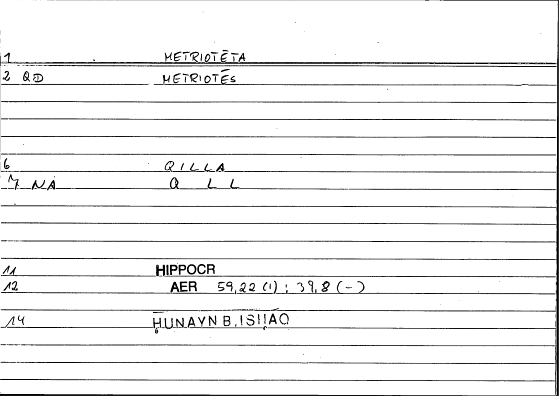 1 METRIOTĒTA
2 QD METRIOTĒS
6 QILLA
7 NA Q L L
11 HIPPOCR
12 AER 59,22 (1) ; 39,8 (-)
14 ḤUNAYN B. ISḤĀQ